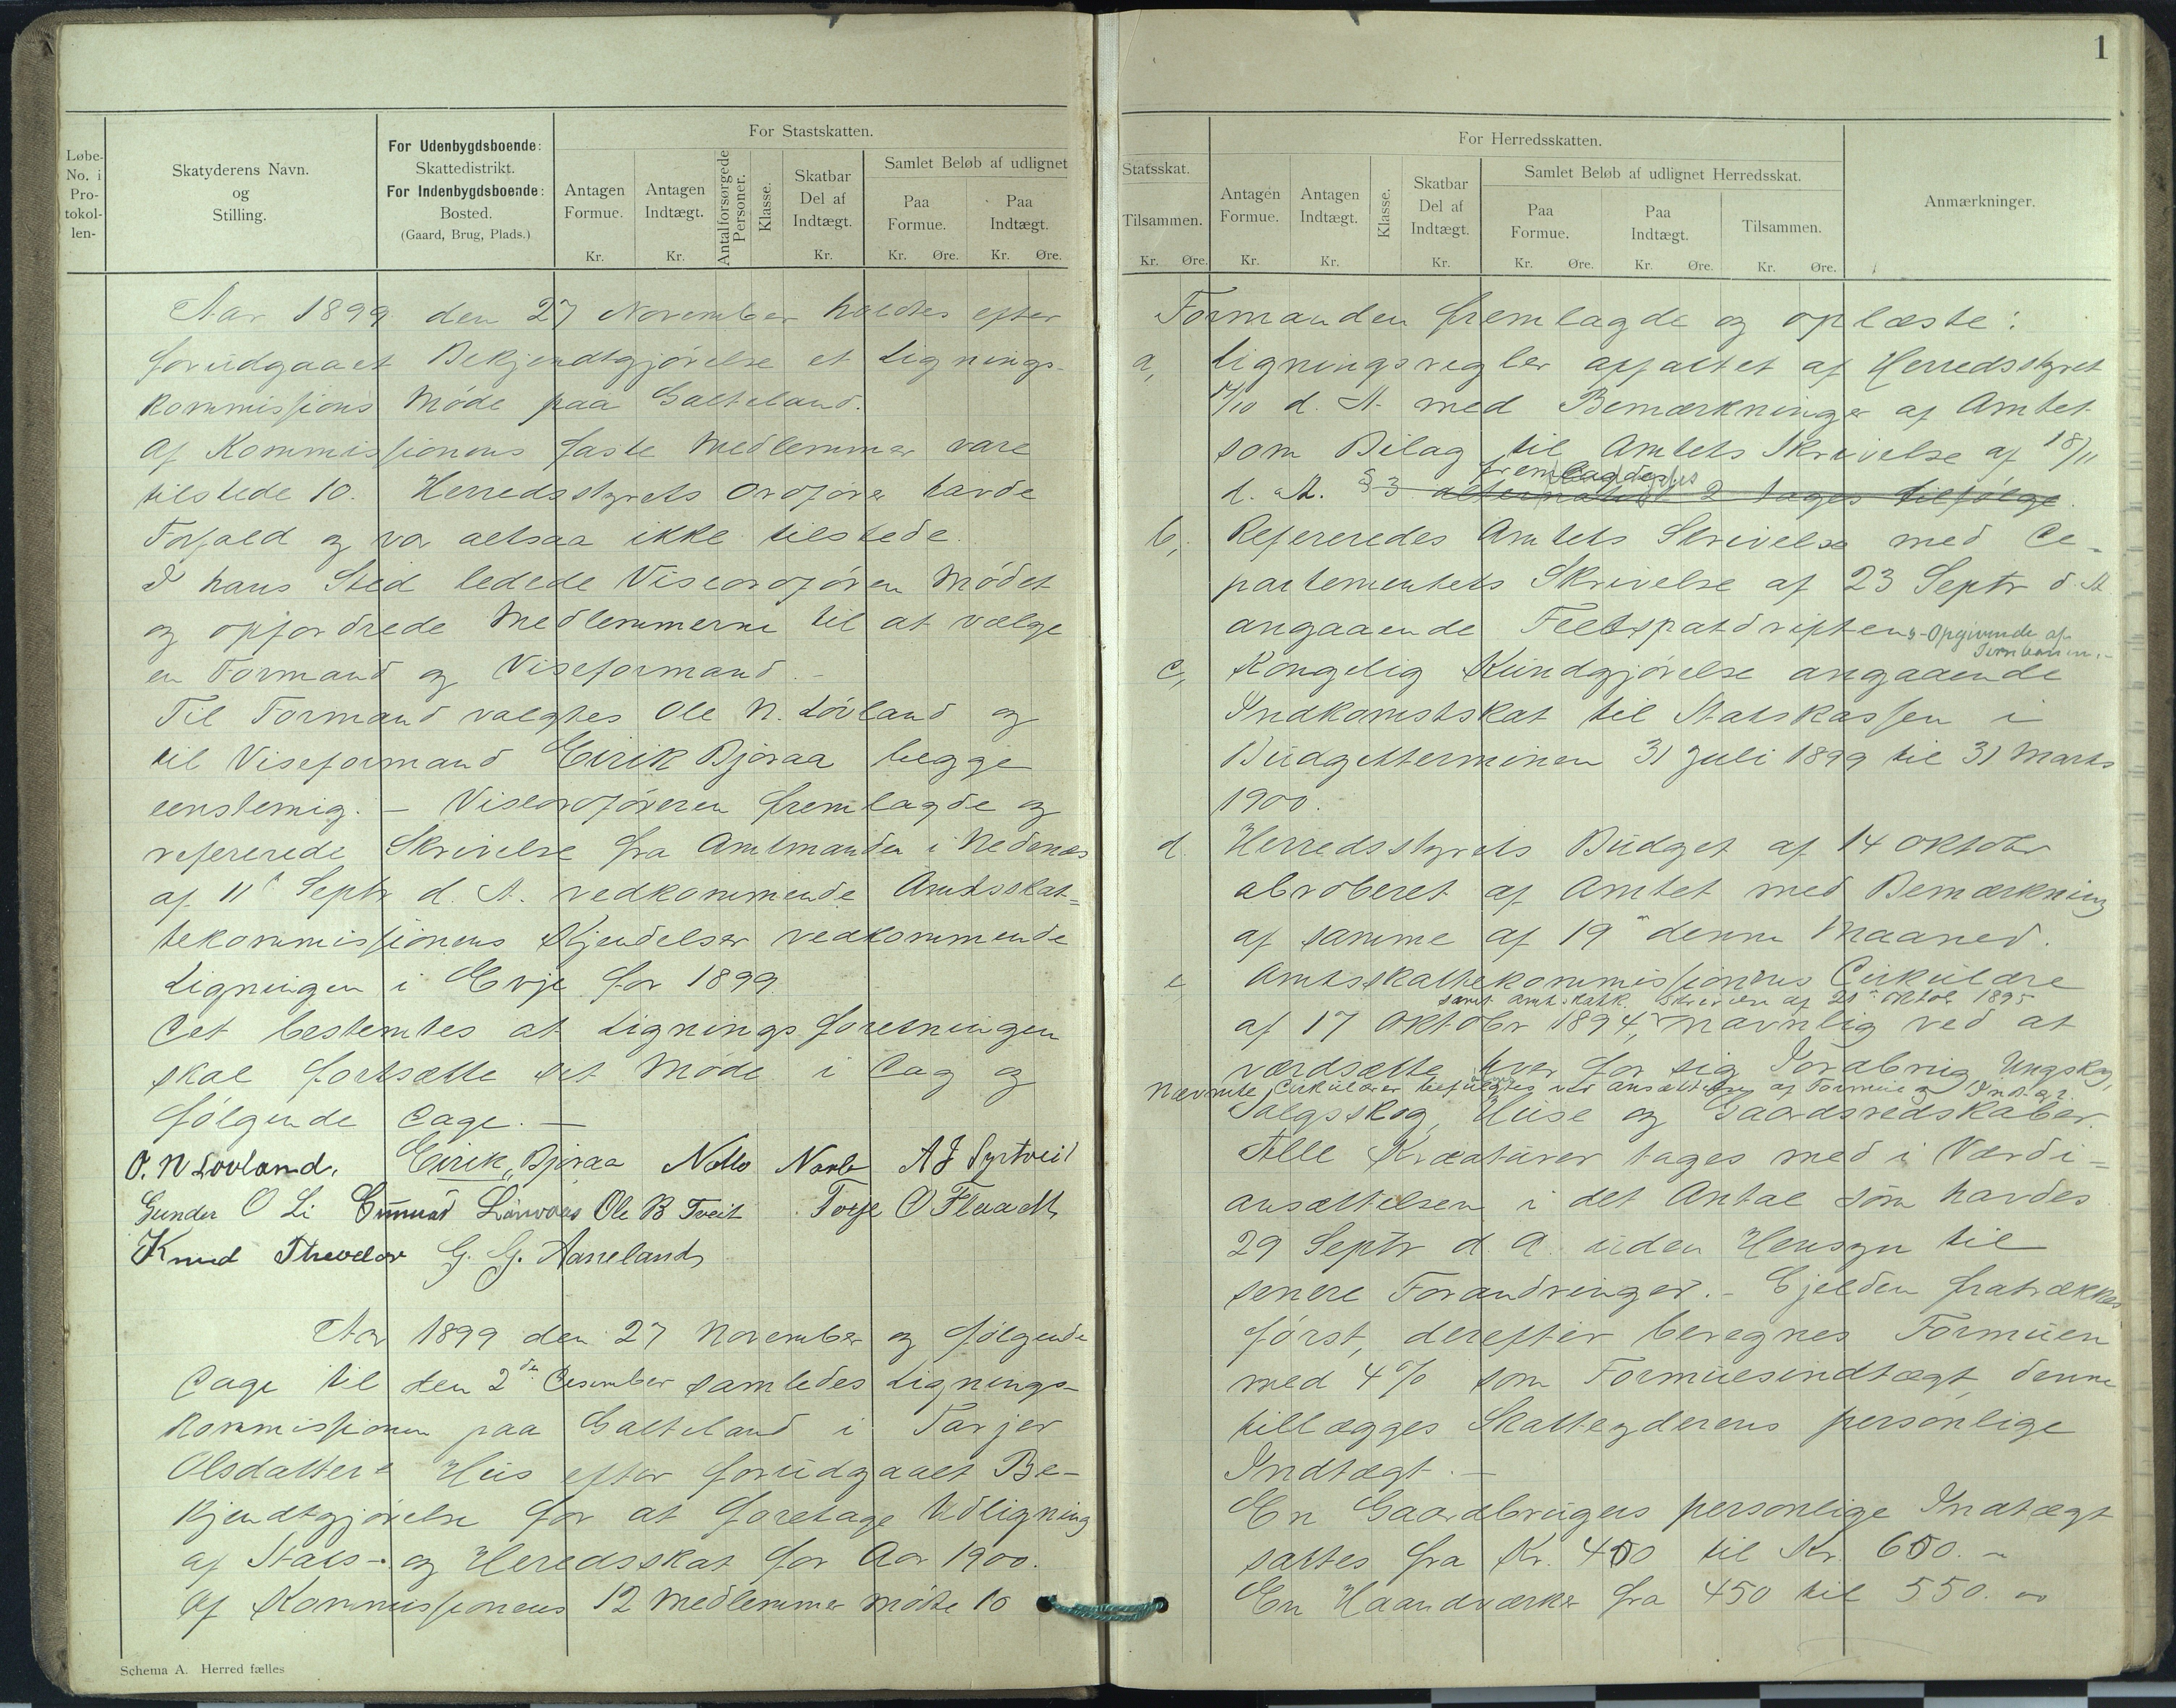 Løbe-
No. i
Pro-
tokol-
len-
Skatyderens Navn.
og
Stilling.
For Udenbygdsboende:
Skattedistrikt.
For Indenbygdsboende:
Bosted.
(Gaard, Brug, Plads.)
For Stastskatten.
Antagen
Formue.
Kr.
Antagen
Indtægt.
Kr.
Antalforsørgede
Personer.
Klasse.
Skatbar
Del af
Indtægt.
Kr.
Samlet Beløb af udlignet
Paa
Formue.
Kr. Øre.
Paa
Indtægt.
Kr. Øre.
Aar 1899 den 27 November holdtes efter
forudgaaet Bekjendtgjørelse et Lignings-
kommissions Møde paa Galteland.
Af Kommissionens faste Medlemmer vare
tilstede 10. Herredsstyrets Ordfører havde
Forfald og var altsaa ikke tilstede.
I hans Sted ledede Viseordføren Mødet
og opfordrede Medlemmerne til at vælge
en Formand og Viseformand.-
Til Formand valgtes Ole N. Løvland og
til Viseformand Eirik Bjoraa begge
eenstemig. - Viseordføreren fremlagde og
refererede Skrivelse fra Amtmanden i Nedenæs
af 11 Septr d. A. vedkommende Amtsskat-
tekommissionens Kjendelser vedkommende
Ligningen i Evje for 1899
Det bestemtes at Ligningsforretningen
skal fortsætte sit Møde i Dag og
følgende Dage. -
O. N Lovland. Eirik Bjoraa A J Syrtveit
Gunder O Li Gunnar Ole B Tveit Torje O Flaadt
Knud G. G. Aaneland
Aar 1899 den 27 November og følgende
Dage til den 2den Desember samledes Lignings-
kommissionen paa Galteland i Tarjer
Olsdatters Hus efter forudgaaet Be-
kjendtgjørelse for at foretage Udligning
af Stats- og Heredsskat for Aar 1900.
Af Kommissionens 12 Medlemmer mødte 10
Schema A. Herred fælles
1
Statsskat.
Tilsammen.
Kr. Øre.
For Herredsskatten.
Antagen
Formue.
Kr.
Antagen
Indtægt.
Kr.
Klasse.
Skatbar
Del af
Indtægt.
Kr.
Samlet Beløb af udlignet Herredsskat.
Paa
Formue.
Kr. Øre.
Paa
Indtægt.
Kr. Øre.
Tilsammen.
Kr. Øre.
Anmærkninger.
Formanden fremlagde og oplæste:
a, Ligningsregler affattet af Herredsstyret
14/10 d. A. med Bemærkninger af Amtet
som Bilag til Amtets Skrivelse af 18/11
fremlagdes
d. A. § 3 alternativ 2 tages tilfølge.
b, Refereredes Amtets Skrivelse med De-
partementets Skrivelse af 23 Septr d. A
angaaende Feltspatdriften - Opgivende af
Jernbanen.-
c, Kongelig Kundgjørelse angaaende
Indkomstskat til Statskassen i
Budgetterminen 31 Juli 1899 til 31 Marts
1900.
d. Herredsstyrets Budget af 14 oktobr
abroberet af Amtet med Bemærkning
af samme af 19 denne Maaned.
e, Amtsskattekommissionens Cirkulære
samt Amtskatk. Skrivelse af 21 oktob 1895
af 17 oktobr 1894, navnlig ved at
værdsætte hver for sig Jordbrug, Ungskog,
Nævnte Cirkulærer befulgtes ved ansættelsen af Formue og Indt.
Salgsskog, Huse og Gaardsredskaber.
Alle Kreaturer tages med i Værdi-
ansættelsen i det Antal som havdes
29 Septr d. A. uden Hensyn til
senere Forandringer. - Gjelden fratrækkes
først, derefter beregnes Formuen
med 4 % som Formuesindtægt, denne
tillægges Skatteyderens personlige
Indtægt. -
En Gaardbrugers personlige Indtægt
sattes fra Kr. 450 til Kr. 650. -
En Haandværker fra 450 til 550. -